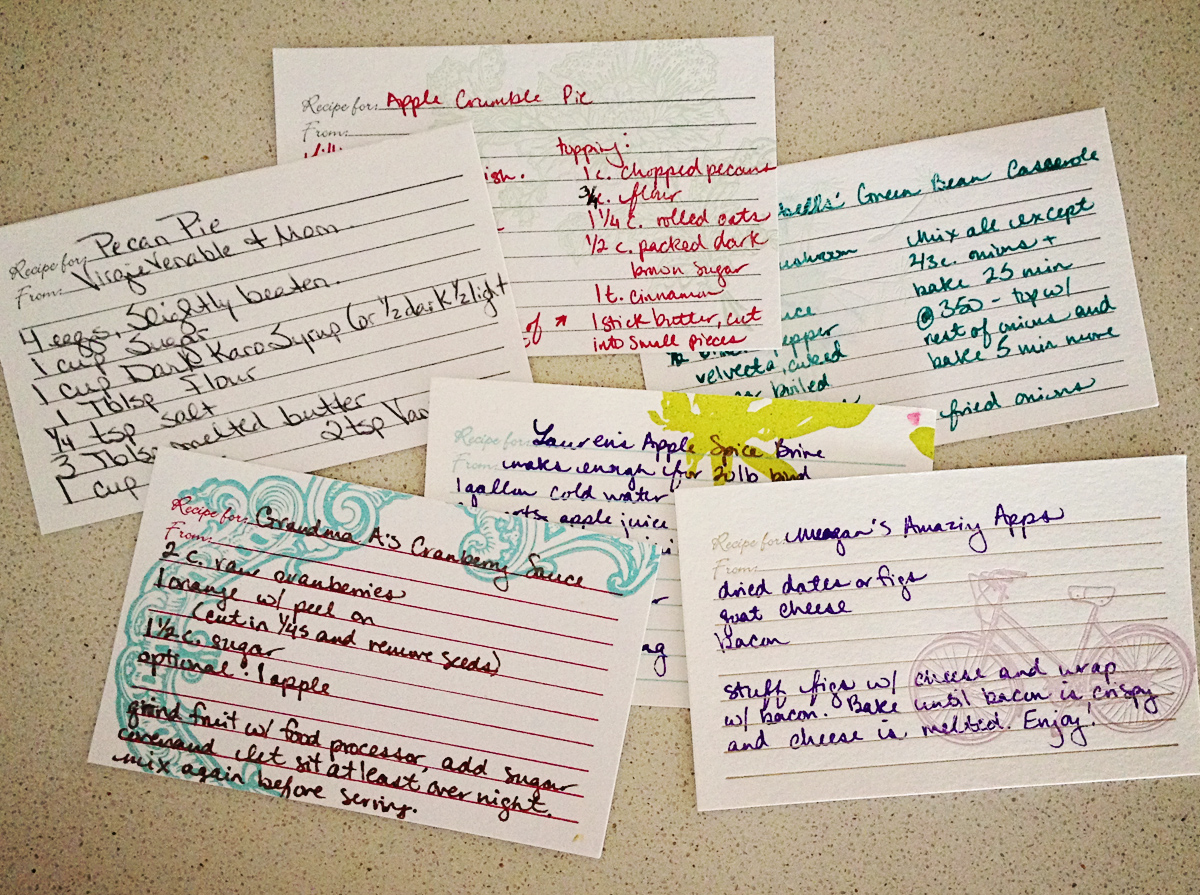 Recipe for: Apple Crumble Pie
From:
topping:
ish. 1 c. chopped pecans
3/4 c. flour
1 1/4 c. rolled oats
1/2 c. packed dark
brown sugar
1 t. cinnamon
of * 1 stick butter, cut
into small pieces
Recipe for: Pecan Pie
From: Virgie Venable & Mom
4 eggs, Slightly beaten.
1 cup Sugar
1 cup Dark Karo Syrup (or 1/2 dark 1/2 light
1 Tblsp Flour
1/4 tsp salt
3 Tbls melted butter
1 cup 2 tsp Va
bells' Green Bean Casserole
mix all except
2/3 c. onions +
bake 25 min
@ 350 - top w/
rest of onions and
bake 5 min more
epper
velveeta, cubed
boiled
fried onions
Recipe for: Lauren's Apple Spice Brine
From: makes enough for 20 lb bird
1 gallon cold water
apple juice
Recipe for: Grandma A's Cranberry Sauce
From:
2 c. raw cranberries
1 orange w/ peel on
(cut in 1/4s and remove seeds)
1 1/2 c. sugar
optional: 1 apple
grind fruit w/ food processor, add sugar
and let sit at least over night.
mix again before serving.
Recipe for: Meagan's Amaziy Apps
From:
dried dates or figs
goat cheese
Bacon
stuff figs w/ cheese and wrap
w/ bacon. Bake until bacon is crispy
and cheese is melted. Enjoy!